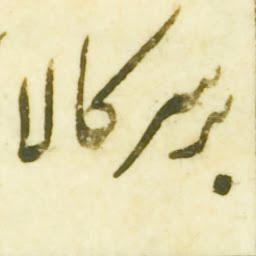 بر سر کالا